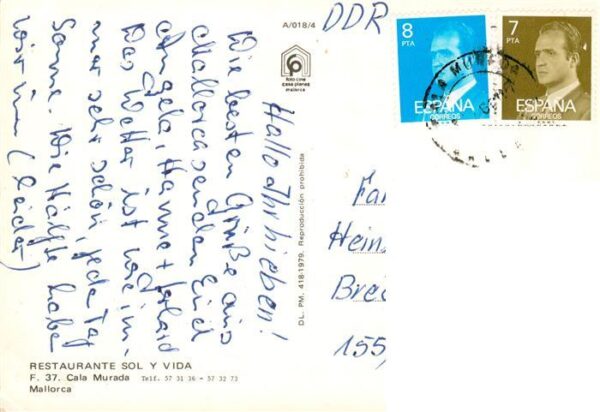 A/018/4
foto cine
casa planas
mallorca
Hallo Ihr Lieben!
Die besten Grüße aus
Mallorca senden Euch
Angela, Hanne +
Das Wetter ist wie im-
mer sehr schön, jeden Tag
Sonne. Die Hälfte haben
wir nun (leider)
RESTAURANTE SOL Y VIDA
F. 37. Cala Murada Telf. 57 31 36 - 57 32 73
Mallorca
DL. PM. 418-1979. Reproducción prohibida
DDR
8
PTA
ESPAÑA
CORREOS
7
PTA
ESPAÑA
CORREOS
MURADA
Fa
Hein
Brei
155